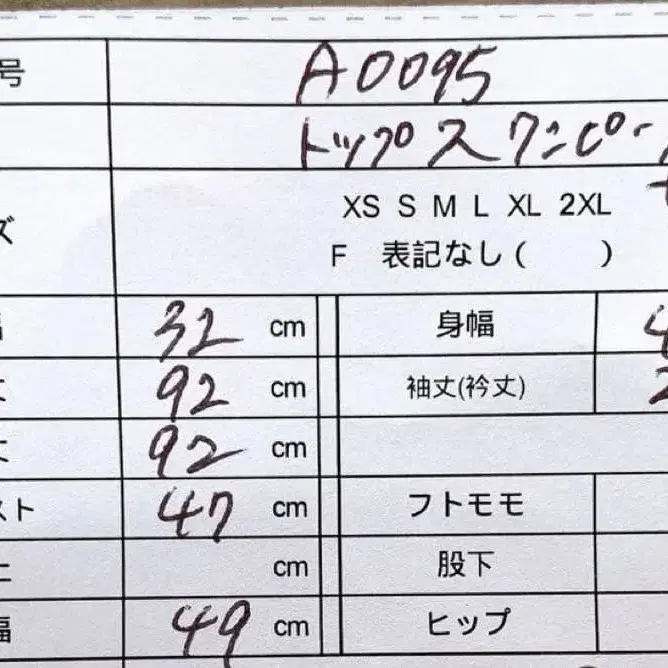 号 A0095
トップス ワンピー
ズ XS S M L XL 2XL
F 表記なし( )
幅 32 cm 身幅 4
丈 92 cm 袖丈(衿丈) 2
丈 92 cm
スト 47 cm フトモモ
上 cm 股下
幅 49 cm ヒップ